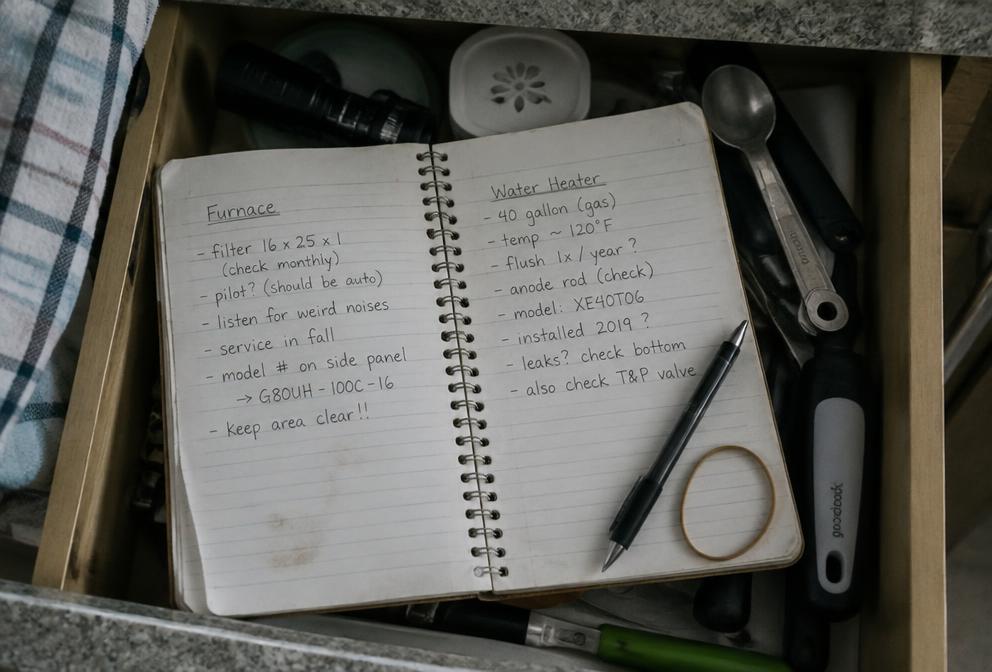 Furnace
- filter 16 x 25 x 1
(check monthly)
- pilot? (should be auto)
- listen for weird noises
- service in fall
- model # on side panel
→ G80UH-100C-16
- Keep area clear!!
Water Heater
- 40 gallon (gas)
- temp ~ 120°F
- flush 1x / year ?
- anode rod (check)
- model: XE40T06
- installed 2019 ?
- leaks? check bottom
- also check T&P valve